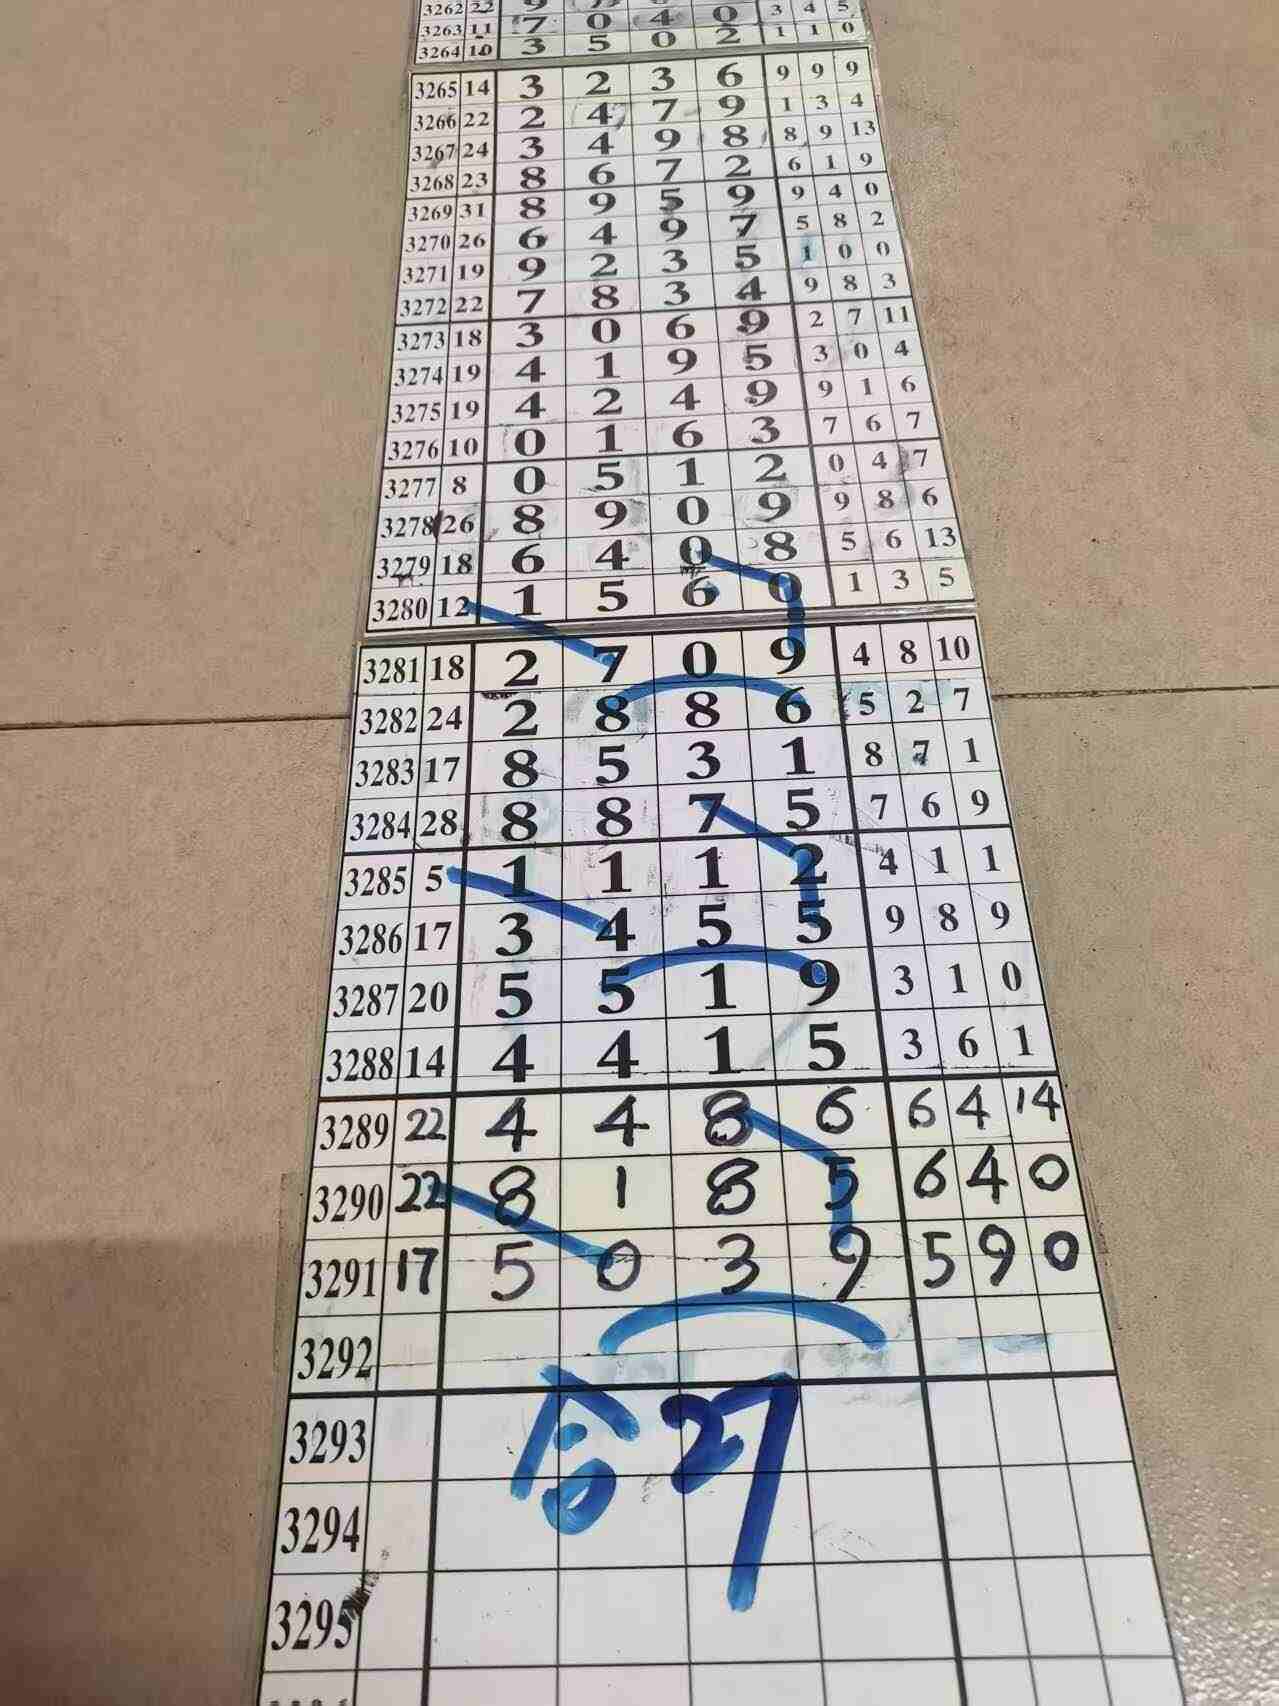 3262 22 9
3263 11 7 0 4 0 3 4 5
3264 10 3 5 0 2 1 1 0
3265 14 3 2 3 6 9 9 9
3266 22 2 4 7 9 1 3 4
3267 24 3 4 9 8 8 9 13
3268 23 8 6 7 2 6 1 9
3269 31 8 9 5 9 9 4 0
3270 26 6 4 9 7 5 8 2
3271 19 9 2 3 5 1 0 0
3272 22 7 8 3 4 9 8 3
3273 18 3 0 6 9 2 7 11
3274 19 4 1 9 5 3 0 4
3275 19 4 2 4 9 9 1 6
3276 10 0 1 6 3 7 6 7
3277 8 0 5 1 2 0 4 7
3278 26 8 9 0 9 9 8 6
3279 18 6 4 0 8 5 6 13
3280 12 1 5 6 0 1 3 5
3281 18 2 7 0 9 4 8 10
3282 24 2 8 8 6 5 2 7
3283 17 8 5 3 1 8 7 1
3284 28 8 8 7 5 7 6 9
3285 5 1 1 1 2 4 1 1
3286 17 3 4 5 5 9 8 9
3287 20 5 5 1 9 3 1 0
3288 14 4 4 1 5 3 6 1
3289 22 4 4 8 6 6 4 14
3290 22 8 1 8 5 6 4 0
3291 17 5 0 3 9 5 9 0
3292
合 27
3293
3294
3295